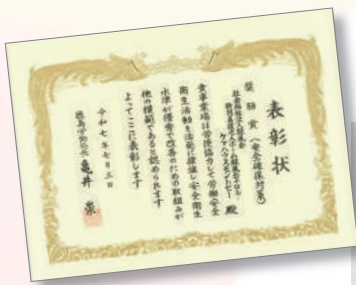 表彰状
奨励賞(安全確保対策)
殿
貴事業場は労使協力して労働安全
衛生活動を活発に推進し安全衛生
水準が優秀で改善のための取組みが
他の模範であると認められます
よってここに表彰します
令和七年七月三日
徳島労働局長 亀井 崇